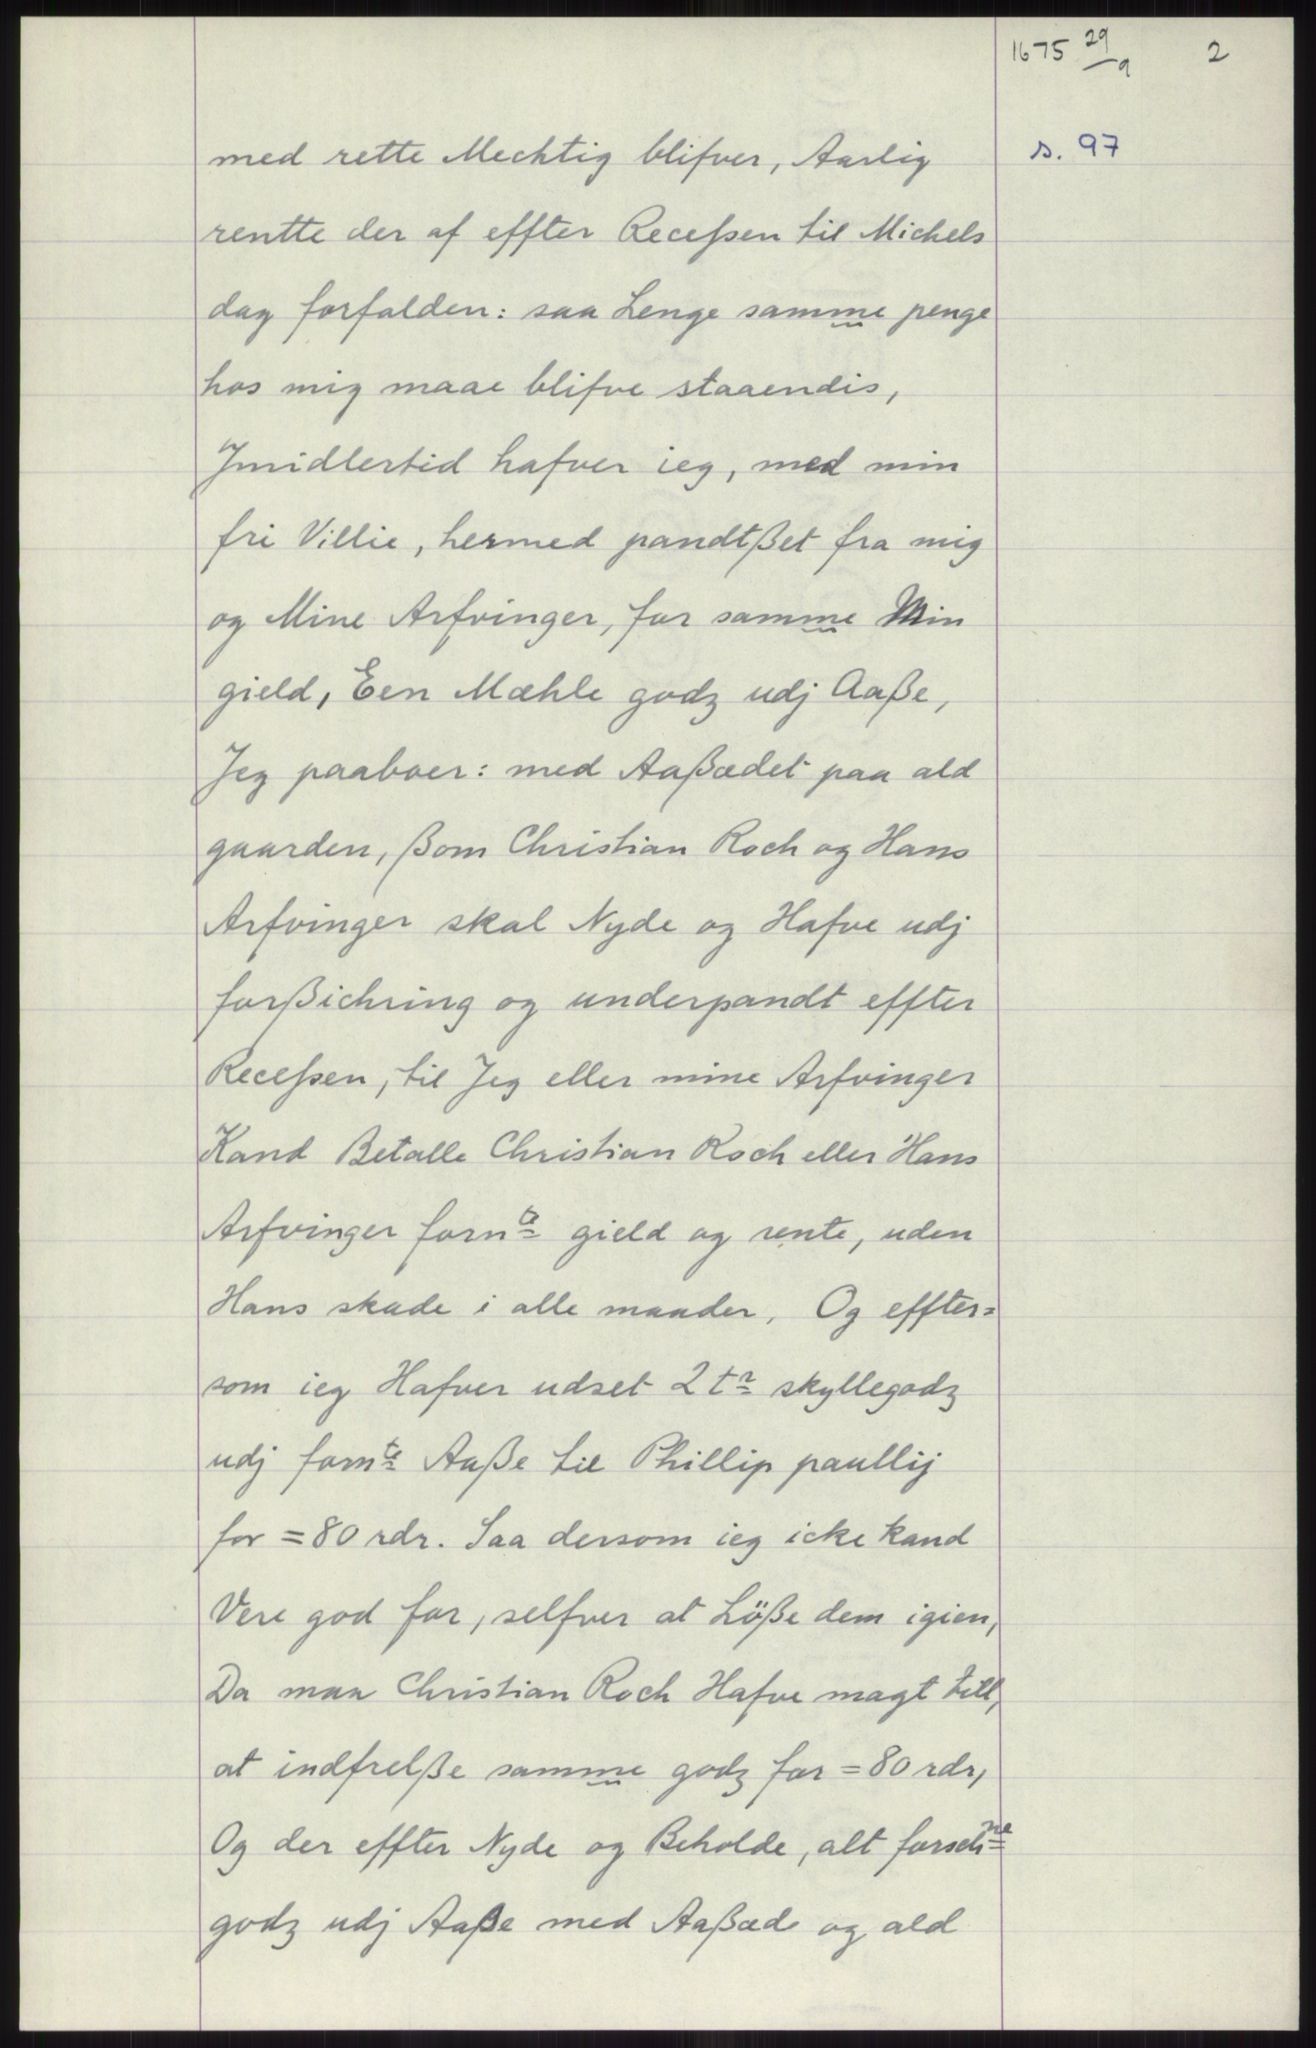 1675 29/9 2
s. 97
med rette Mechtig blifver, Aarlig
rentte der af effter Receßen til Michels
dag forfalden: saa Lenge samme penge
hos mig maae blifve staaendis,
Jmidlertid hafver ieg, med min
fri Villie, hermed pandtßet fra mig
og Mine Arfvinger, for samme Min
gield, Een Mæhle godz udj Aaße,
Jeg paaboer: med Aaßædet paa ald
gaarden, ßom Christian Roch og Hans
Arfvinger skal Nyde og Hafve udj
forßichring og underpandt effter
Receßen, til Jeg eller mine Arfvinger
Kand Betalle Christian Koch eller Hans
Arfvinger fornte gield og rente, uden
Hans skade i alle maader. Og effter=
som ieg Hafver udset 2 tr skyllegodz
udj fornte Aaße til Phillip paullij
for = 80 rdr. Saa dersom ieg icke kand
Vere god for, selfver at Lößе dem igien,
Da maa Christian Roch Hafve magt till,
at indfrelße samme godz for = 80 rdr,
Og der effter Nyde og Beholde, alt forschne
godz udj Aaße med Aaßæde og ald